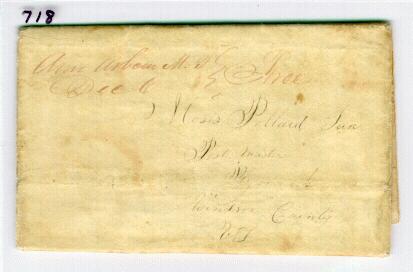 718
Ann Arbour M. T. Free
Dec 6
Moses Pollard Jun
Post Master
Windsor County
Vt